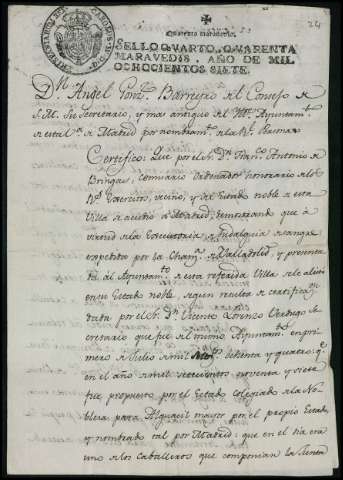 24
Quarenta maravedis.
SELLO QVARTO, QVARENTA
MARAVEDIS, AÑO DE MIL
OCHOCIENTOS SIETE.
D.n Angel Gonz.z Barreyro del Consejo de
S. M. su Secretario, y mas antiguo del Ill.e Ayuntam.to
de esta V.a de Madrid por nombram.to de la R.l Persona
Certifico: Que por el S.r D.n Fran.co Antonio de
Bringas, Comisario Ordenador honorario de los
R.s Exercitos, vecino, y del Estado noble de esta
Villa se acudio a Madrid, demostrando que à
virtud de la Executoria de Hidalguia de sangre
expedida por la Chan.a de Valladolid, y presenta
da al Ayuntam.to de esta referida Villa se le alistó
en su Estado noble, segun resulta de certifica.n
dada por el S.r D.n Vicente Lorenzo Verdugo Se
cretario que fue del mismo Ayuntam.to en pri
mero de Julio de mil setenta y quatro: q.e
en el año de mil setecientos noventa y siete
fue propuesto por el Estado colegiado de la No
bleza para Alguacil mayor por el propio Estado,
y nombrado tal por Madrid: que en el dia era
uno de los Caballeros que componian la Junta